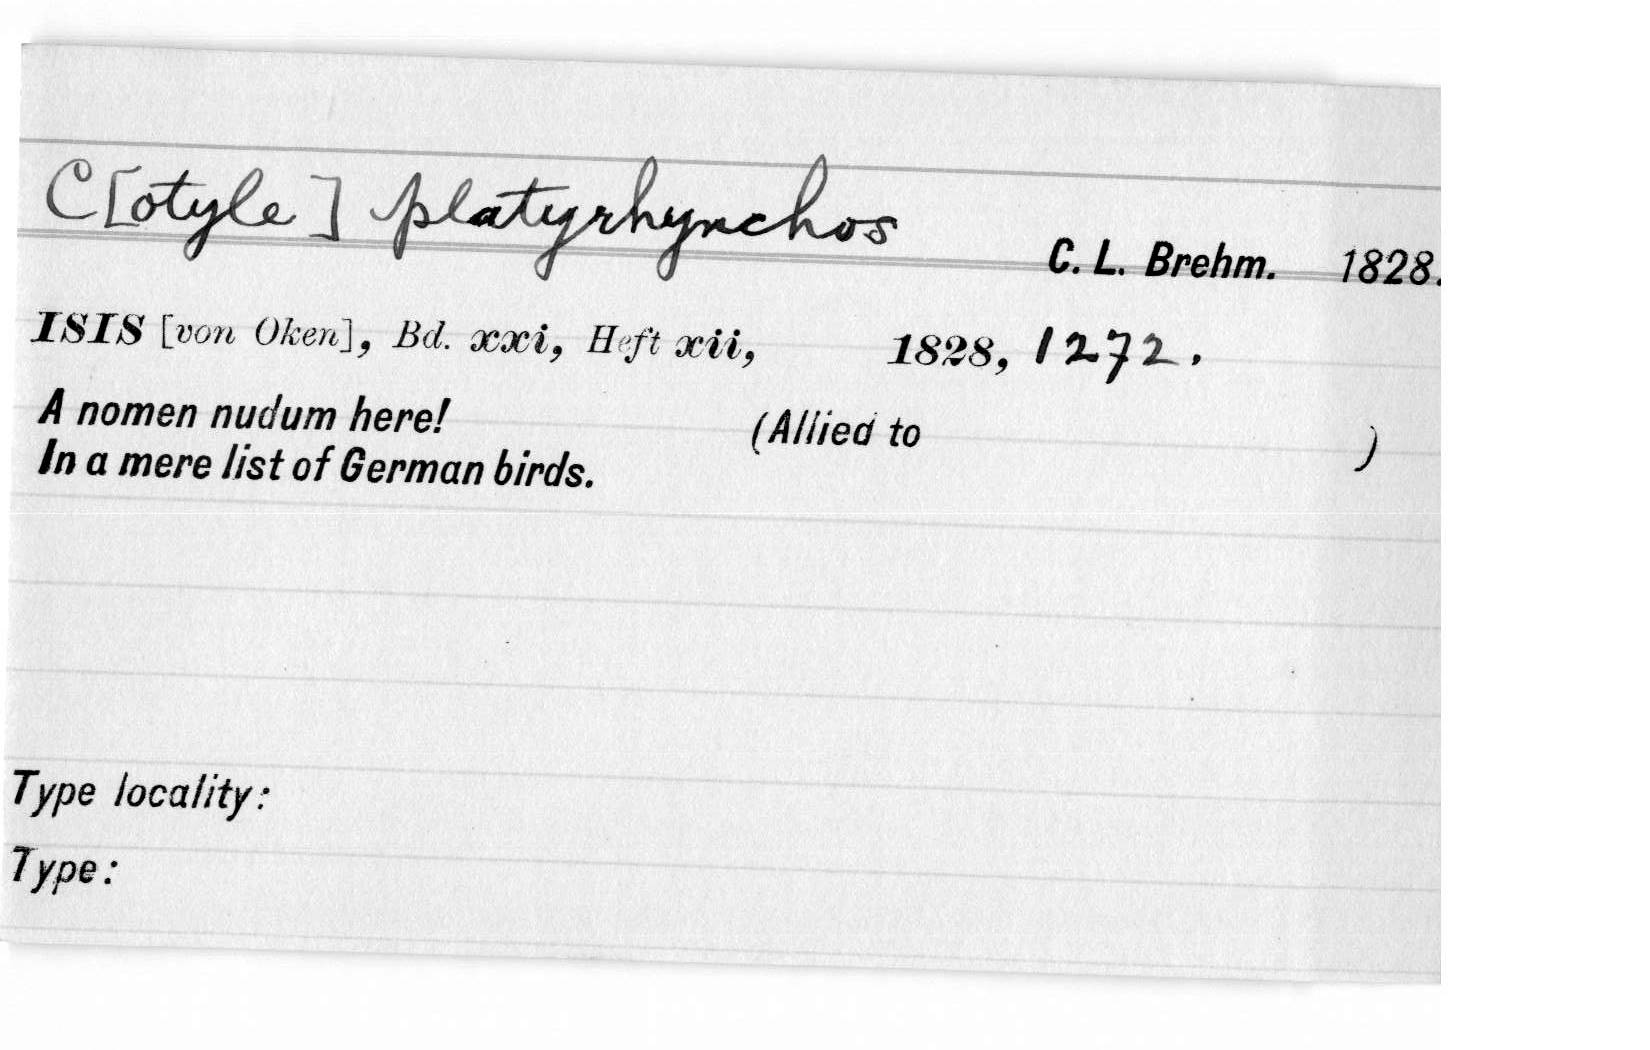 C[otyle] platyrhynchos
C. L. Brehm. 1828.
ISIS [von Oken], Bd. xxi, Heft xii, 1828, 1272.
A nomen nudum here! (Allied to )
In a mere list of German birds.
Type locality:
Type: